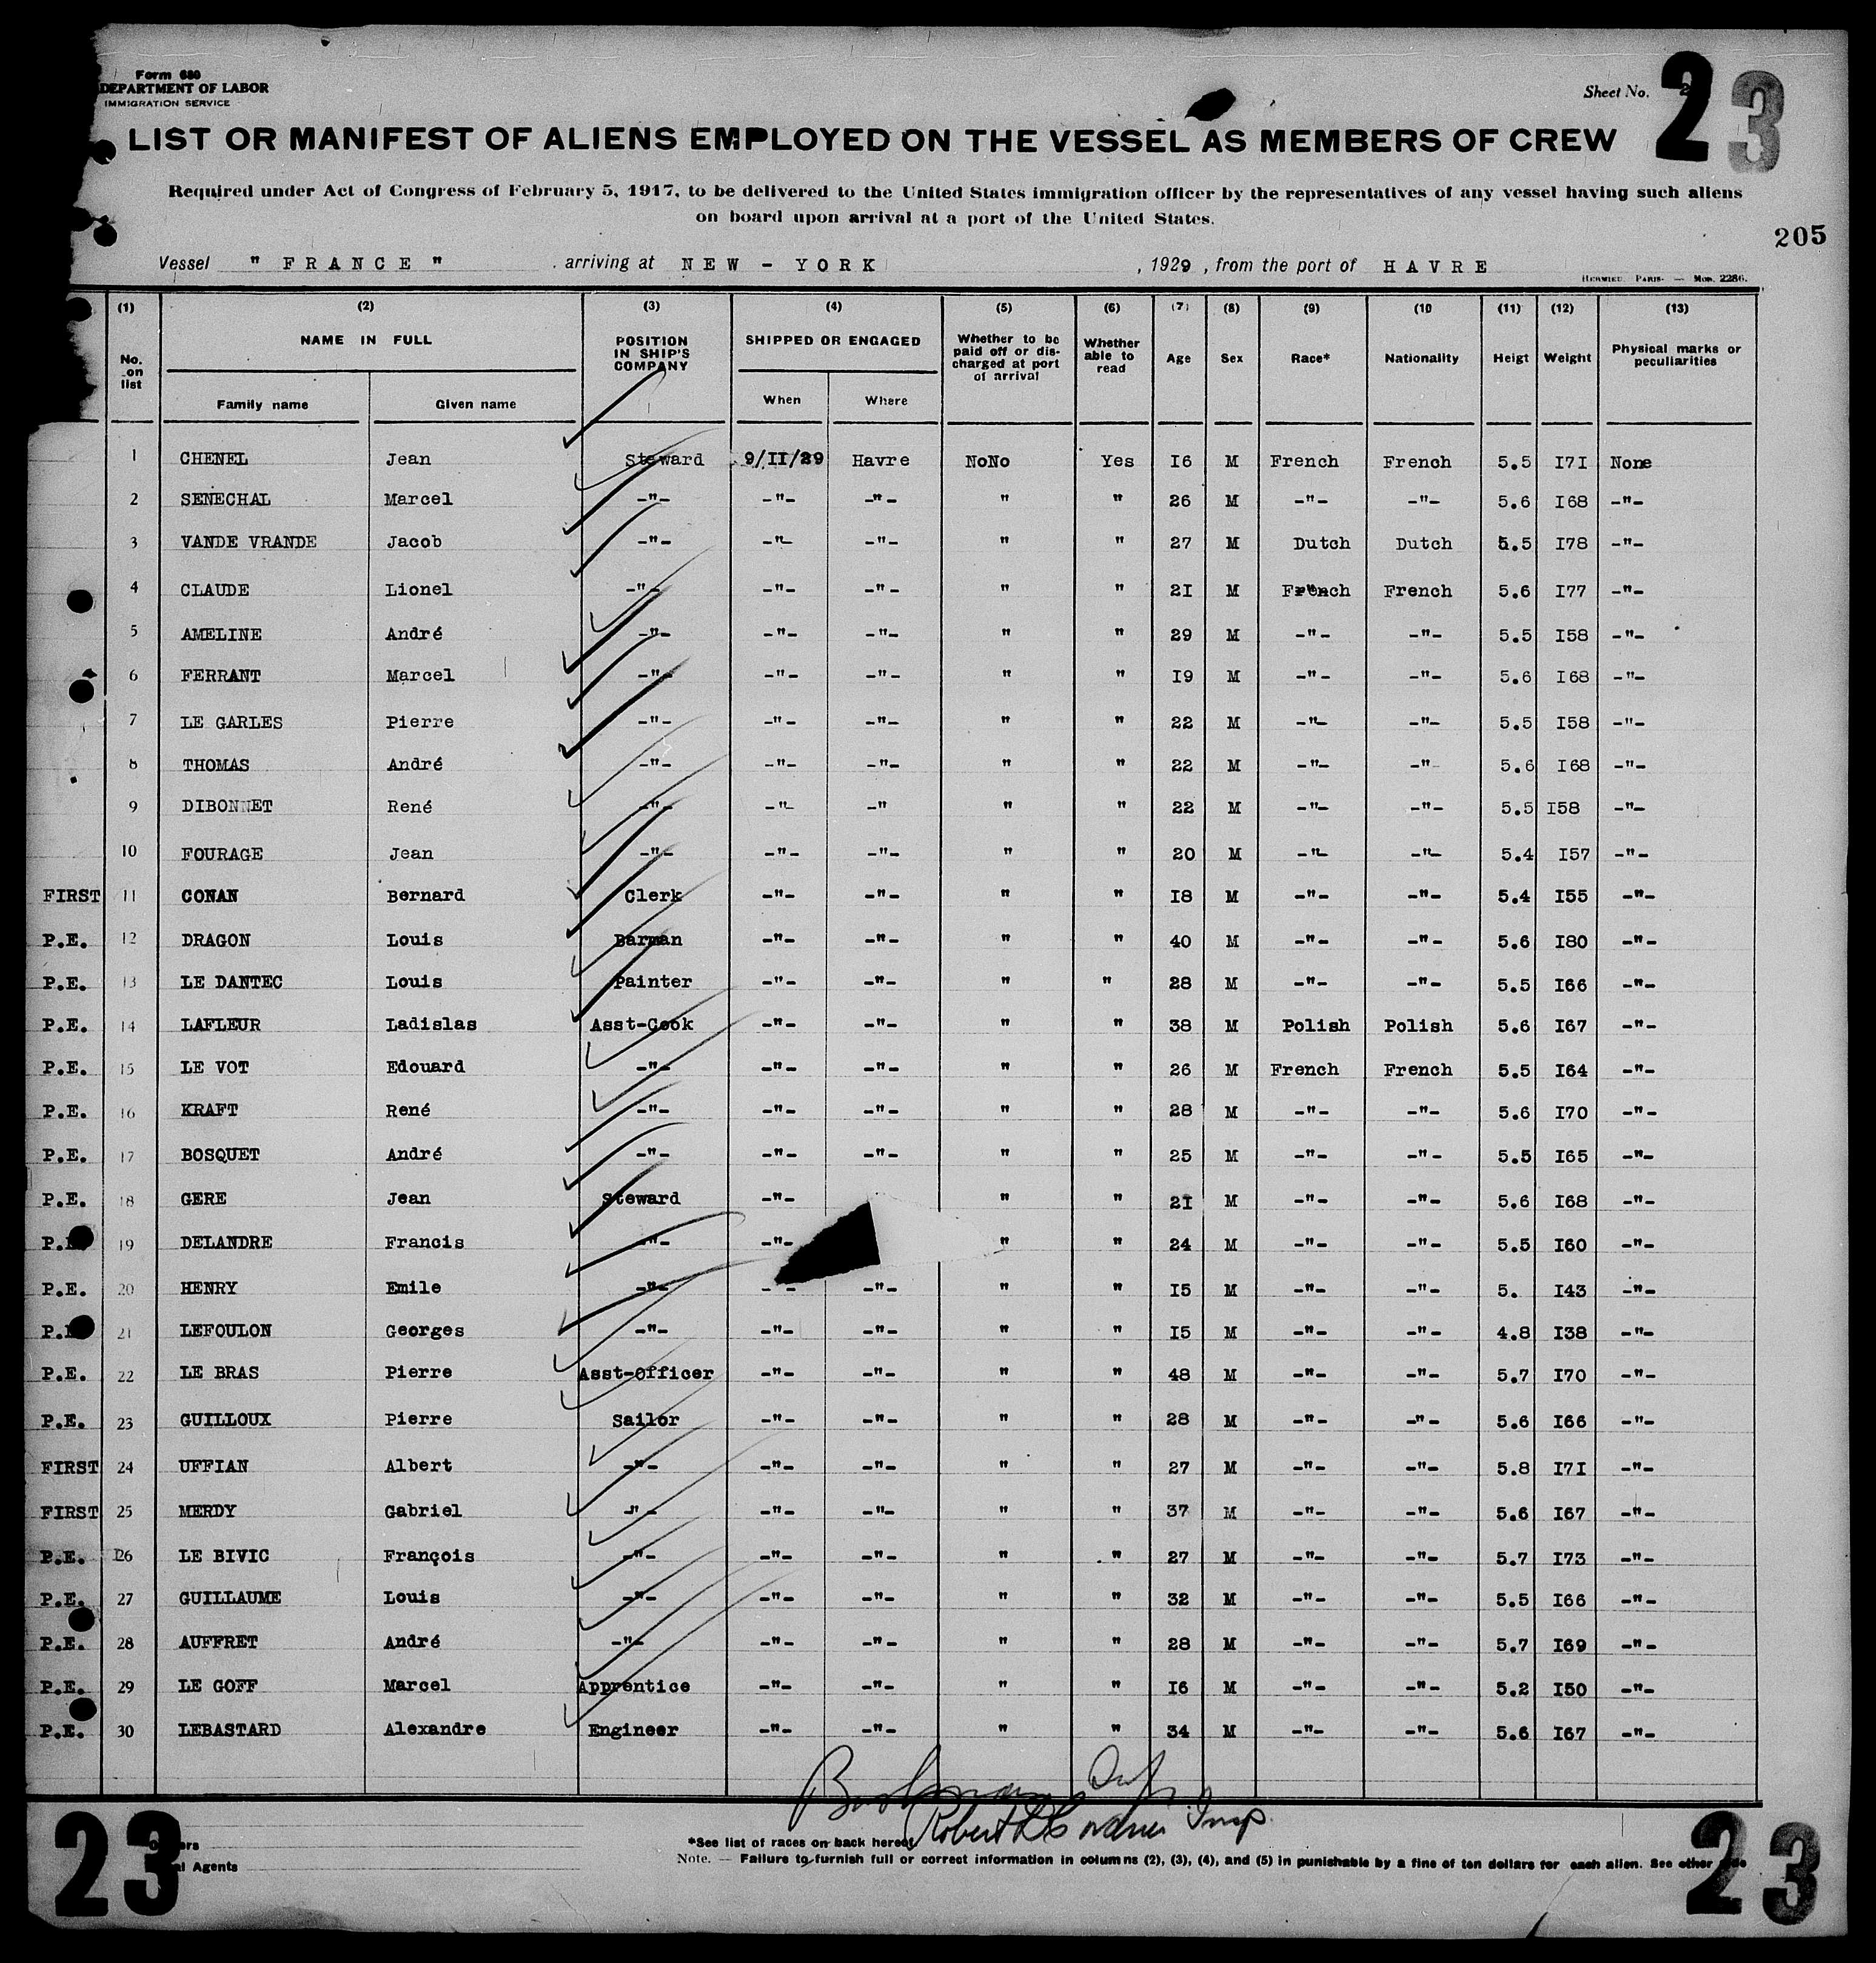 Form 680
DEPARTMENT OF LABOR
IMMIGRATION SERVICE
Sheet No. 23
LIST OR MANIFEST OF ALIENS EMPLOYED ON THE VESSEL AS MEMBERS OF CREW
Required under Act of Congress of February 5, 1917, to be delivered to the United States immigration officer by the representatives of any vessel having such aliens
on board upon arrival at a port of the United States.
205
Vessel " FRANCE " arriving at NEW - YORK , 1929 , from the port of HAVRE
HERMIEU. PARIS. — Mod. 2286.
(1) (2) (3) (4) (5) (6) (7) (8) (9) (10 (11) (12) (13)
No. on list NAME IN FULL POSITION IN SHIP'S COMPANY SHIPPED OR ENGAGED Whether to be paid off or discharged at port of arrival Whether able to read Age Sex Race* Nationality Heigt Weight Physical marks or peculiarities
Family name Given name When Where
1 CHENEL Jean Steward 9/II/29 Havre NoNo Yes I6 M French French 5.5 I7I None
2 SENECHAL Marcel -"- -"- -"- " " 26 M -"- -"- 5.6 I68 -"-
3 VANDE VRANDE Jacob -"- -"- -"- " " 27 M Dutch Dutch 5.5 I78 -"-
4 CLAUDE Lionel -"- -"- -"- " " 2I M French French 5.6 I77 -"-
5 AMELINE André -"- -"- -"- " " 29 M -"- -"- 5.5 I58 -"-
6 FERRANT Marcel -"- -"- -"- " " I9 M -"- -"- 5.6 I68 -"-
7 LE GARLES Pierre -"- -"- -"- " " 22 M -"- -"- 5.5 I58 -"-
8 THOMAS André -"- -"- -"- " " 22 M -"- -"- 5.6 I68 -"-
9 DIBONNET René -"- -"- -" " " 22 M -"- -"- 5.5 I58 -"-
10 FOURAGE Jean -"- -"- -"- " " 20 M -"- -"- 5.4 I57 -"-
FIRST 11 CONAN Bernard Clerk -"- -"- " " I8 M -"- -"- 5.4 I55 -"-
P.E. 12 DRAGON Louis Barman -"- -"- " " 40 M -"- -"- 5.6 I80 -"-
P.E. 13 LE DANTEC Louis Painter -"- -"- " " 28 M -"- -"- 5.5 I66 -"-
P.E. 14 LAFLEUR Ladislas Asst-Cook -"- -"- " " 38 M Polish Polish 5.6 I67 -"-
P.E. 15 LE VOT Edouard -"- -"- -"- " " 26 M French French 5.5 I64 -"-
P.E. 16 KRAFT René -"- -"- -"- " " 28 M -"- -"- 5.6 I70 -"-
P.E. 17 BOSQUET André -"- -"- -"- " " 25 M -"- -"- 5.5 I65 -"-
P.E. 18 GERE Jean Steward -"- " " 2I M -"- -"- 5.6 I68 -"-
P. 19 DELANDRE Francis -"- -"- " " 24 M -"- -"- 5.5 I60 -"-
P.E. 20 HENRY Emile -"- - - -"- " " I5 M -"- -"- 5. I43 -"-
P. 21 LEFOULON Georges -"- -"- -"- " " I5 M -"- -"- 4.8 I38 -"-
P.E. 22 LE BRAS Pierre Asst-Officer -"- -"- " " 48 M -"- -"- 5.7 I70 -"-
P.E. 23 GUILLOUX Pierre Sailor -"- -"- " " 28 M -"- -"- 5.6 I66 -"-
FIRST 24 UFFIAN Albert -"- -"- -"- " " 27 M -"- -"- 5.8 I7I -"-
FIRST 25 MERDY Gabriel -"- -"- -"- " " 37 M -"- -"- 5.6 I67 -"-
P.E. 26 LE BIVIC François -"- -"- -"- " " 27 M -"- -"- 5.7 I73 -"-
P.E. 27 GUILLAUME Louis -"- -"- -"- " " 32 M -"- -"- 5.5 I66 -"-
P.E. 28 AUFFRET André -"- -"- -"- " " 28 M -"- -"- 5.7 I69 -"-
P.E. 29 LE GOFF Marcel Apprentice -"- -"- " " I6 M -"- -"- 5.2 I50 -"-
P.E. 30 LEBASTARD Alexandre Engineer -"- -"- " " 34 M -"- -"- 5.6 I67 -"-
Robert Insp.
*See list of races on back hereof
Agents
Note. — Failure to furnish full or correct information in columns (2), (3), (4), and (5) in punishable by a fine of ten dollars for each alien. See other
23
23